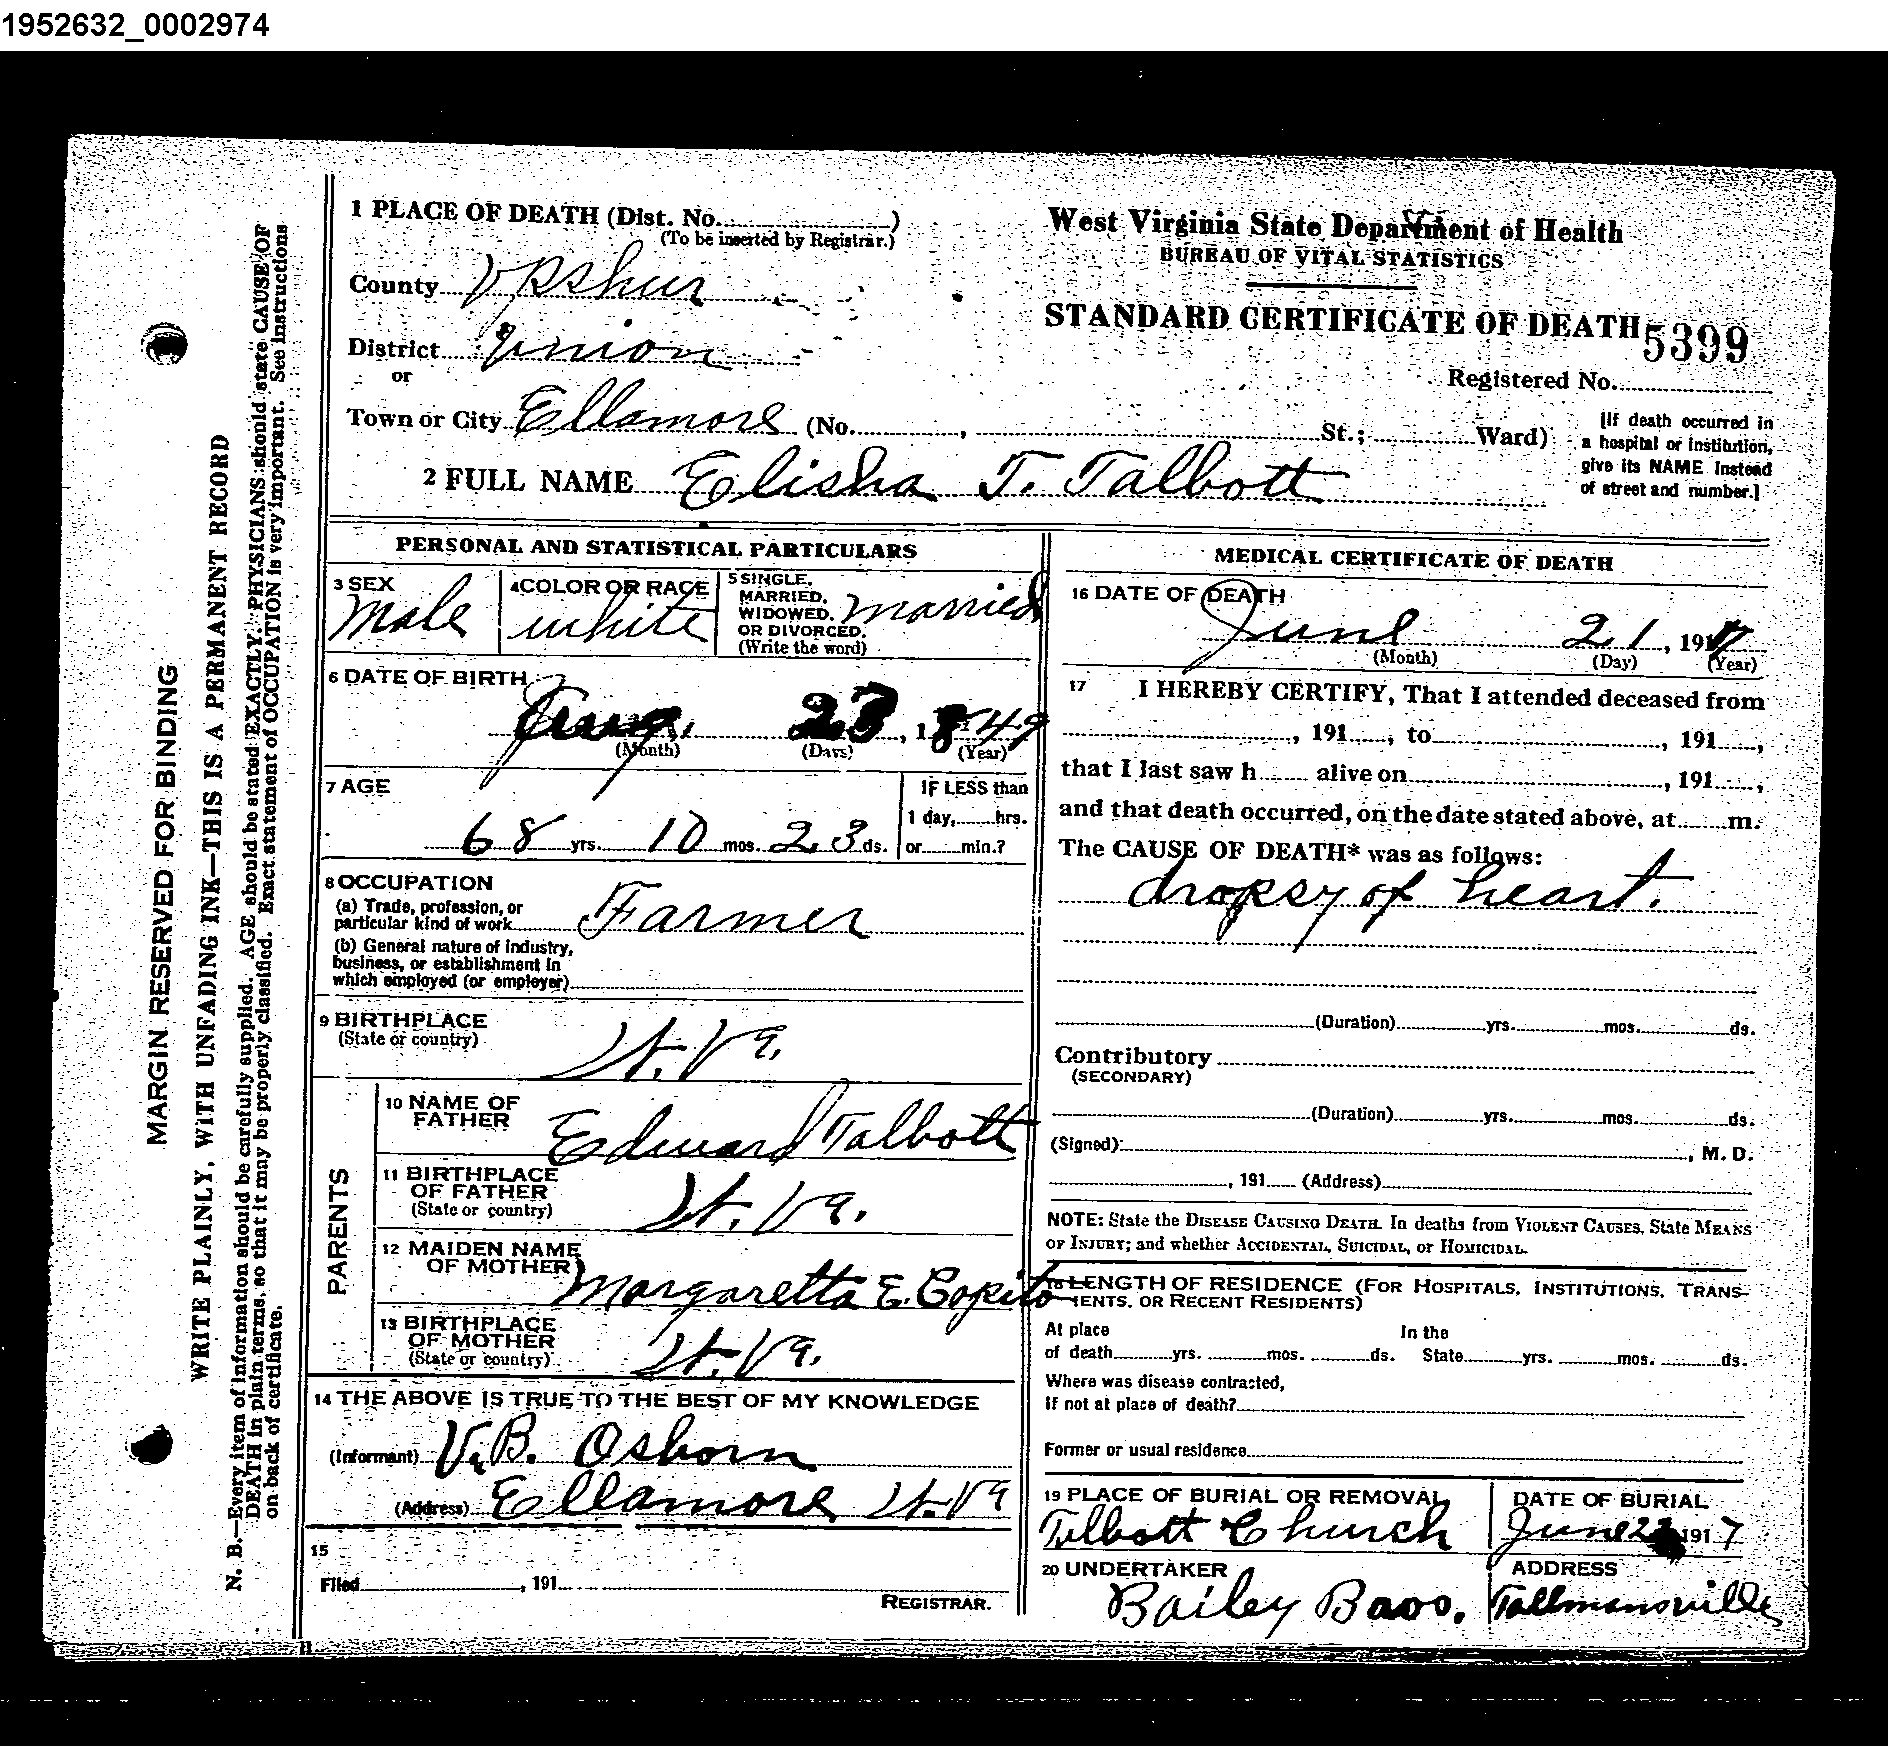 1952632_0002974
1 PLACE OF DEATH (Dist. No. )
(To be inserted by Registrar.)
County Upshur
District Union
or
Town or City Ellamore (No. , St.; Ward)
2 FULL NAME Elisha T. Talbott
West Virginia State Department of Health
BUREAU OF VITAL STATISTICS
STANDARD CERTIFICATE OF DEATH 5399
Registered No.
[If death occurred in
a hospital or institution,
give its NAME instead
of street and number.]
MARGIN RESERVED FOR BINDING
WRITE PLAINLY, WITH UNFADING INK—THIS IS A PERMANENT RECORD
N. B.—Every item of information should be carefully supplied. AGE should be stated EXACTLY. PHYSICIANS should state CAUSE OF
DEATH in plain terms, so that it may be properly classified. Exact statement of OCCUPATION is very important. See instructions
on back of certificate.
PERSONAL AND STATISTICAL PARTICULARS
3 SEX
Male
4 COLOR OR RACE
white
5 SINGLE,
MARRIED,
WIDOWED,
OR DIVORCED.
(Write the word)
married
6 DATE OF BIRTH
Aug. 23, 1849
(Month) (Days) (Year)
7 AGE
68 yrs. 10 mos. 23 ds.
IF LESS than
1 day, hrs.
or min.?
8 OCCUPATION
(a) Trade, profession, or
particular kind of work Farmer
(b) General nature of industry,
business, or establishment in
which employed (or employer)
9 BIRTHPLACE
(State or country) W. Va.
PARENTS
10 NAME OF
FATHER Edward Talbott
11 BIRTHPLACE
OF FATHER
(State or country) W. Va.
12 MAIDEN NAME
OF MOTHER Margaretta E. Copito
13 BIRTHPLACE
OF MOTHER
(State or country) W. Va.
14 THE ABOVE IS TRUE TO THE BEST OF MY KNOWLEDGE
(Informant) V. B. Osborn
(Address) Ellamore W. Va
15
Filed , 191
REGISTRAR.
MEDICAL CERTIFICATE OF DEATH
16 DATE OF DEATH
June 21, 1917
(Month) (Day) (Year)
17 I HEREBY CERTIFY, That I attended deceased from
, 191 , to , 191 ,
that I last saw h alive on , 191 ,
and that death occurred, on the date stated above, at m.
The CAUSE OF DEATH* was as follows:
dropsy of heart.
(Duration) yrs. mos. ds.
Contributory
(SECONDARY)
(Duration) yrs. mos. ds.
(Signed) , M. D.
, 191 (Address)
NOTE: State the DISEASE CAUSING DEATH. In deaths from VIOLENT CAUSES, State MEANS
OF INJURY; and whether ACCIDENTAL, SUICIDAL, or HOMICIDAL.
18 LENGTH OF RESIDENCE (FOR HOSPITALS, INSTITUTIONS, TRANS-
IENTS, OR RECENT RESIDENTS)
At place In the
of death yrs. mos. ds. State yrs. mos. ds.
Where was disease contracted,
if not at place of death?
Former or usual residence
19 PLACE OF BURIAL OR REMOVAL
Talbott Church
DATE OF BURIAL
June 22 1917
20 UNDERTAKER
Bailey Baos.
ADDRESS
Tallmansville